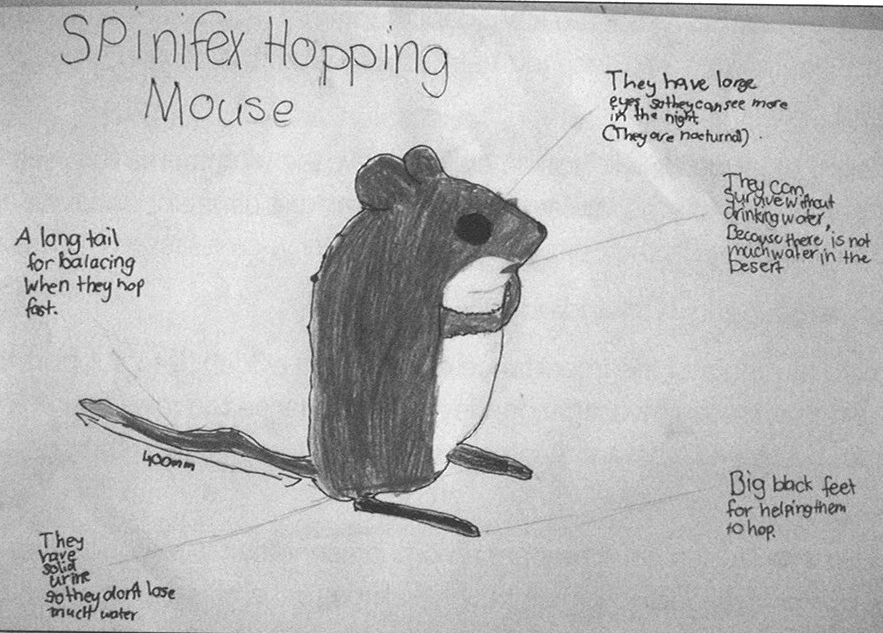 SPinifex Hopping
Mouse
They have large
eyes so they can see more
in the night
(They are nocturnal).
They can
Survive without
drinking water,
Because there is not
much water in the
Desert
A long tail
for balacing
when they hop
fast.
400mm
Big black feet
for helping them
to hop.
They
have
solid
urine
so they don't lose
much water